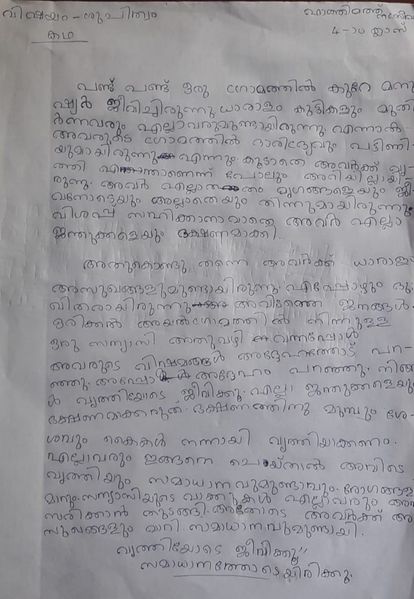 വിഷയം - ശുചിത്വം
കഥ
4-ാം ക്ലാസ്
പണ്ട് പണ്ട് ഒരു ഗ്രാമത്തിൽ കുറേ മനു
ഷ്യർ ജീവിച്ചിരുന്നു ധാരാളം കുട്ടികളും മുതി
ർന്നവരും എല്ലാവരുമുണ്ടായിരുന്നു എന്നാൽ
അവരുടെ ഗ്രാമത്തിൽ ദാരിദ്ര്യവും പട്ടിണി
യുമായിരുന്നു എന്നും കൂടാതെ അവർക്ക് വൃ
ത്തി എന്താണെന്ന് പോലും അറിയില്ലായി
രുന്നു. അവർ എല്ലാ മൃഗങ്ങളെയും ജീ
വനോടെയും അല്ലാതെയും തിന്നുമായിരുന്നു
വിശപ്പ് സഹിക്കാനാവാതെ അവർ എല്ലാ
ജന്തുക്കളെയും ഭക്ഷണമാക്കി.
അതുകൊണ്ടു തന്നെ അവർക്ക് ധാരാളം
അസുഖങ്ങളുമുണ്ടായിരുന്നു. എപ്പോഴും ദു
ഖിതരായിരുന്നു അവിടത്തെ ജനങ്ങൾ.
ഒരിക്കൽ അയൽഗ്രാമത്തിൽ നിന്നുള്ള
ഒരു സന്യാസി അതുവഴി വന്നപ്പോൾ
അവരുടെ വിഷമങ്ങൾ അദ്ദേഹത്തോട് പറ-
ഞ്ഞു. അപ്പോൾ അദ്ദേഹം പറഞ്ഞു. നിങ്ങ
ൾ വൃത്തിയോടെ ജീവിക്കൂ. എല്ലാ ജന്തുങ്ങളെയും
ഭക്ഷണമാക്കരുത്. ഭക്ഷണത്തിനു മുമ്പും ശേ-
ശവും കൈകൾ നന്നായി വൃത്തിയാക്കണം.
എല്ലാവരും ഇങ്ങനെ ചെയ്താൽ അവിടെ
വൃത്തിയും സമാധാനവുമുണ്ടാവും. രോഗങ്ങളു
മാറും. സന്യാസിയുടെ വാക്കുകൾ എല്ലാവരും അനു
സരിക്കാൻ തുടങ്ങി. അതോടെ അവർക്ക് അ
സുഖങ്ങളും മാറി. സമാധാനവുമുണ്ടായി.
വൃത്തിയോടെ ജീവിക്കൂ"
സമാധാനത്തോടെയിരിക്കൂ.